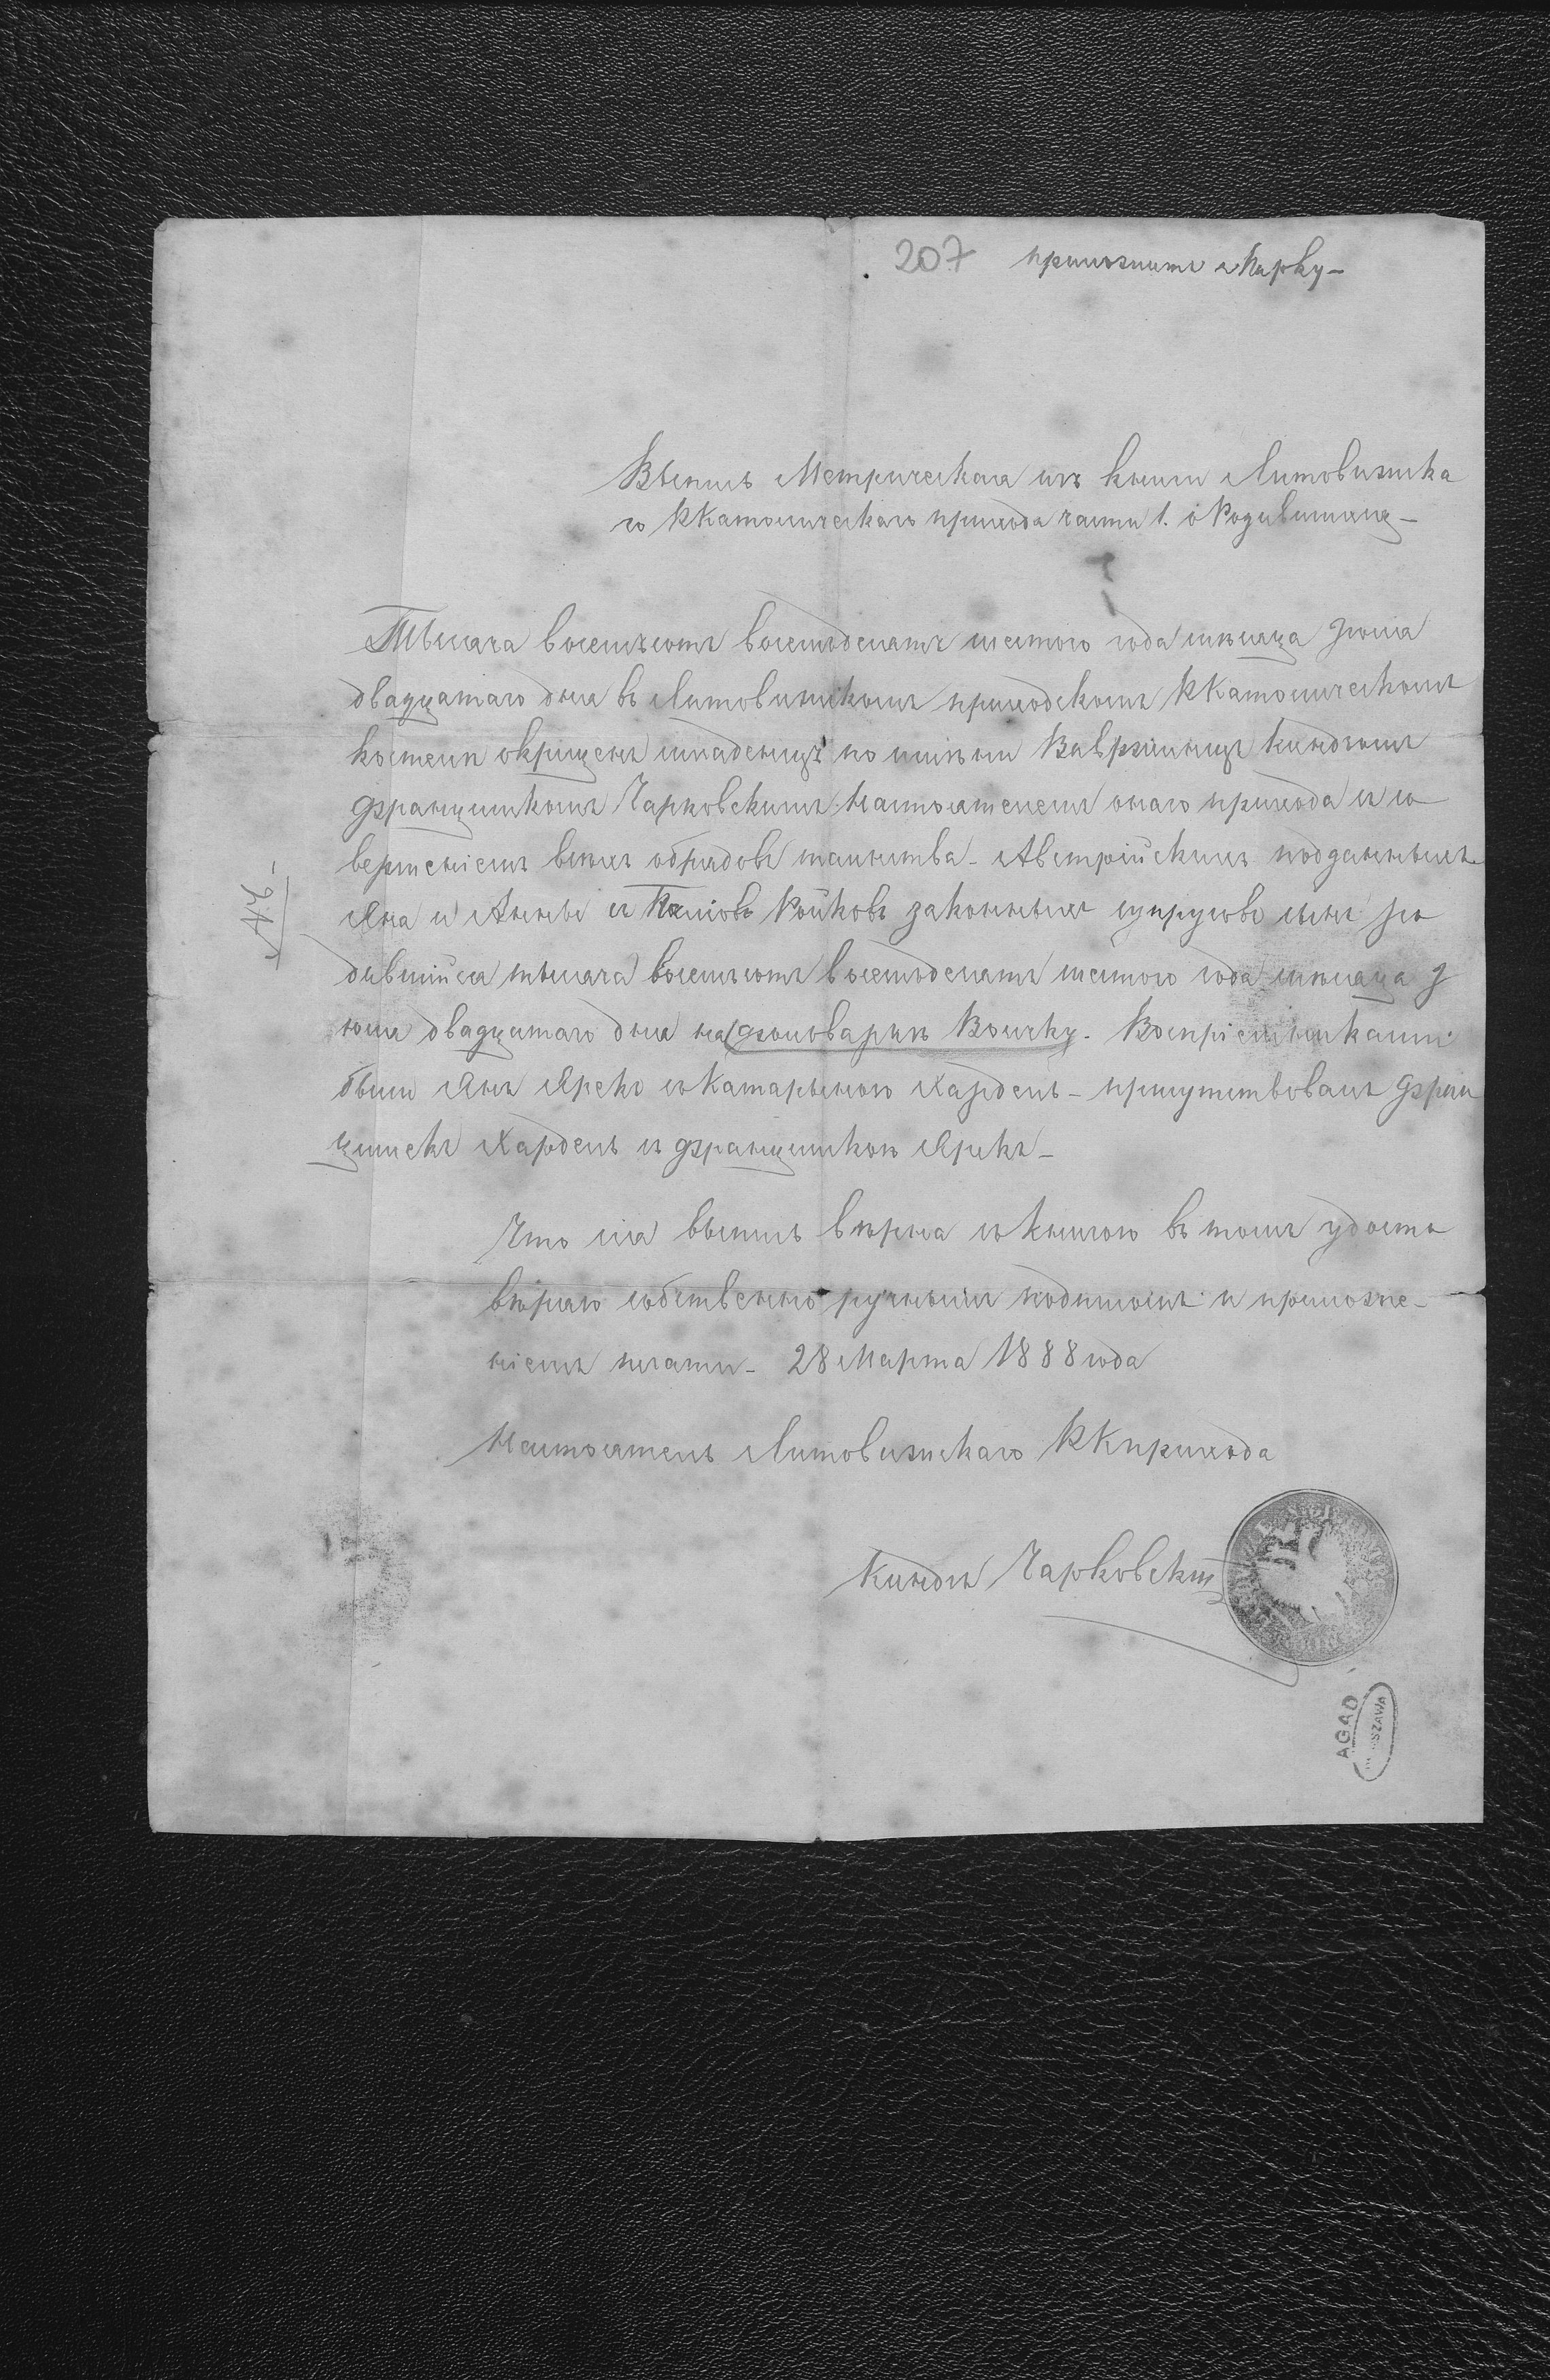 207 приложить марку-
Выпись Метрическая изъ книги Литовижска
го РКатолическаго прихода части 1. о Родившихся-
Тысяча восемьсотъ восемьдесятъ шестого года мѣсяца Іюня
двадцатаго дня въ Литовижскомъ приходскомъ РКатолическомъ
костелѣ окрещенъ младенецъ по имени Вавржинецъ Ксендзомъ
Францишкомъ Чарковскимъ Настоятелемъ онаго прихода съ со
вершеніемъ всѣхъ обрядовъ таинства- Австрійскихъ подданныхъ
Яна и Анны съ Войковъ законныхъ супруговъ сынъ ро
дившійся тысяча восемьсотъ восемьдесятъ шестого года мѣсяца І
юня двадцатаго дня на фольваркѣ Волчку. Воспріемниками
были Янъ Ярекъ съ Катарыною Хардель- присутствовалъ Фран
цишекъ Хардель съ Францишкою Ярекъ-
Что сія выпись вѣрна съ книгою въ томъ удосто
вѣряю собственно ручнымъ подписомъ и приложе-
ніемъ печати- 28 Марта 1888 года
Настоятель Литовижскаго РКприхода
Ксендзъ Чарковскій
AGAD